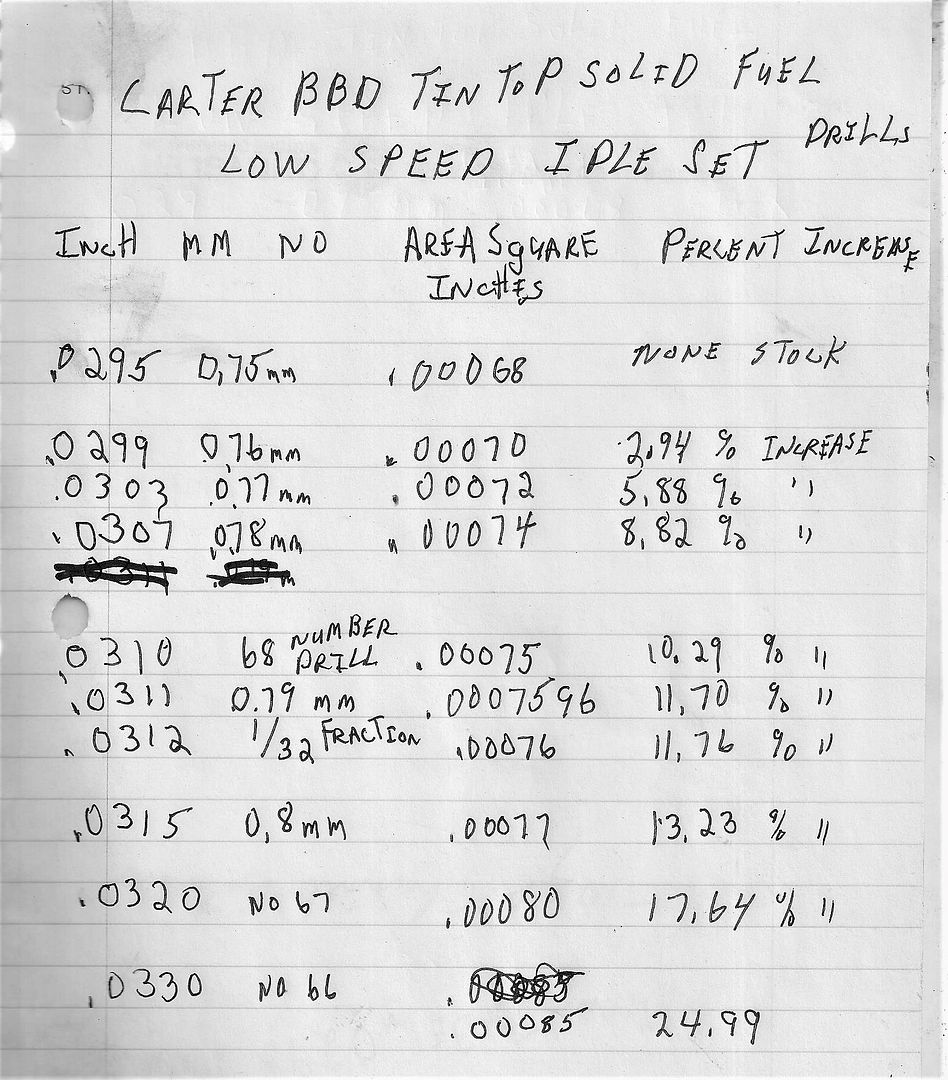 CARTER BBD TIN TOP SOLID FUEL
LOW SPEED IDLE SET DRILLS
INCH MM NO AREA SQUARE INCHES PERCENT INCREASE
.0295 0.75mm .00068 NONE STOCK
.0299 0.76mm .00070 2.94 % INCREASE
.0303 0.77mm .00072 5.88 % "
.0307 0.78mm .00074 8.82 % "
.0310 68 NUMBER DRILL .00075 10.29 % "
.0311 0.79 mm .0007596 11.70 % "
.0312 1/32 FRACTION .00076 11.76 % "
.0315 0.8mm .00077 13.23 % "
.0320 NO 67 .00080 17.64 % "
.0330 NO 66
.00085 24.99